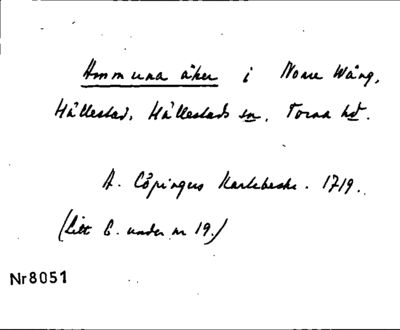 Ammuna åker i Norre Wång,
Hällestad, Hällestads sn, Torna hd.
A. Cöpingers Kartebeskr. 1719.
(Litt C. under nr 19.)
Nr 8051